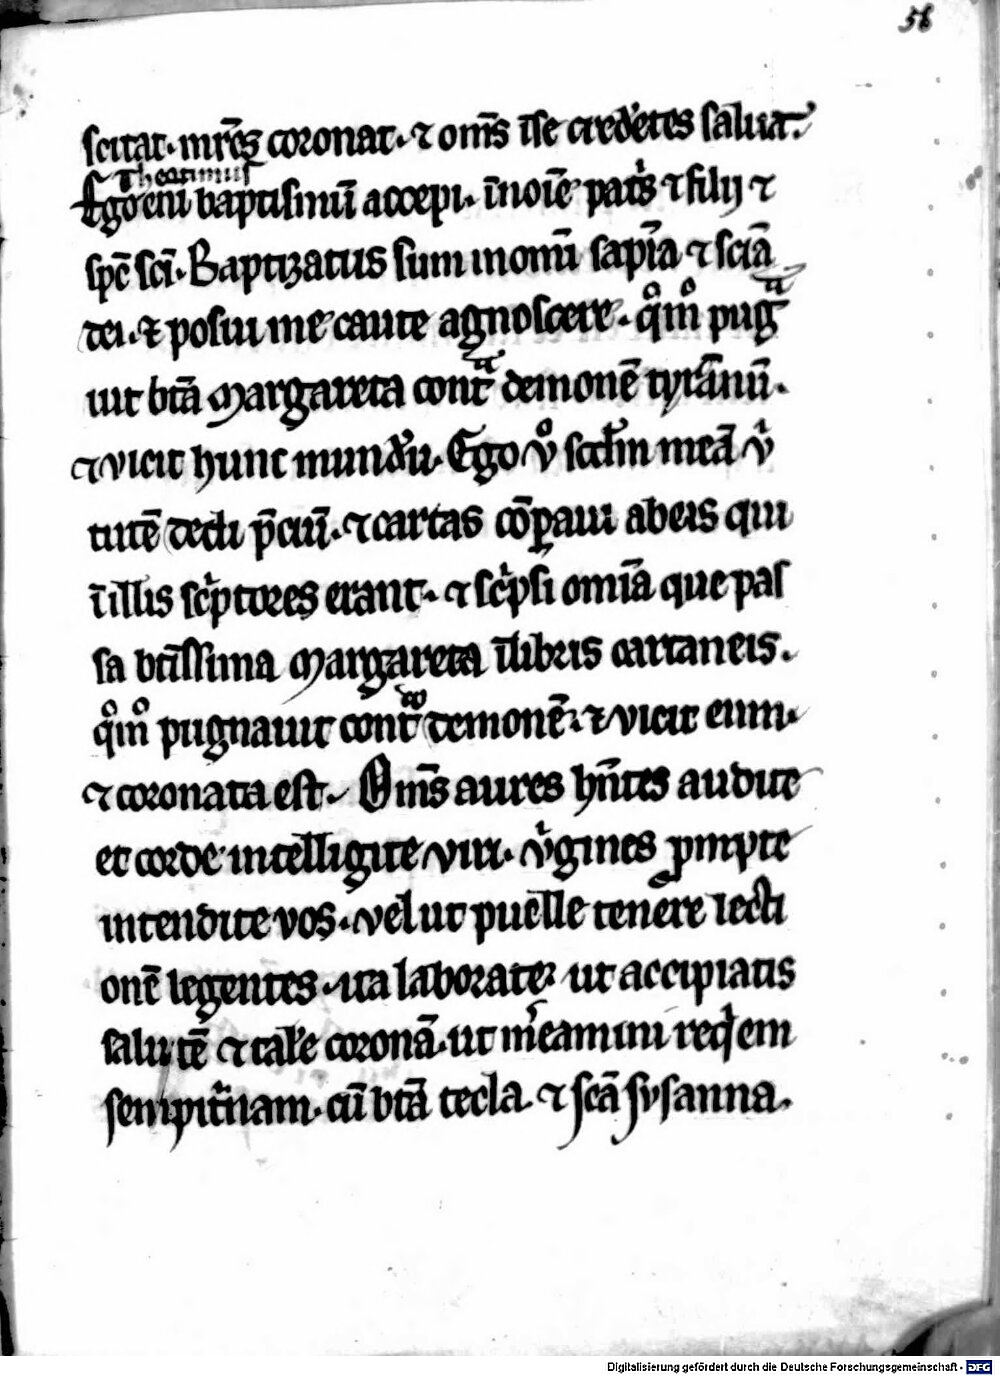 56
scitat. mr̄es coronat. ⁊ om̄s ī se credētes saluat.
Theotimus
Ego eni baptismū accepi. ī noīe patͥs ⁊ filij ⁊
sp̄c sc̄i. Baptizatus sum in om̄i sapīa ⁊ sciā
dei. ⁊ posui me caute agnoscere. qͦmͦ pugᷓ
uit btā Margareta contᷓ demonē tyrānū.
⁊ vicit hunc mundū. Ego vͦ scd̄m meā vͥ
tutē dedi p̄ciū. ⁊ cartas cōꝑaui ab eis qui
ī illis scͥptores erant. ⁊ scͥpsi omīa que pas
sa btīssima Margareta ī libris cartaneis.
qͦmͦ pugnauit contᷓ demonē. ⁊ vicit eum.
⁊ coronata est. Om̄s aures hn̄tes audite
et corde intelligite viri. vͥgines ꝓmpte
intendite vos. velut puelle tenere lecti
onē legentes. ita laborate ut accipiatis
salutē ⁊ talē coronā. ut m̄eamini reqͥem
sempit̄nam. cū btā tecla. ⁊ scā susanna.
Digitalisierung gefördert durch die Deutsche Forschungsgemeinschaft - DFG